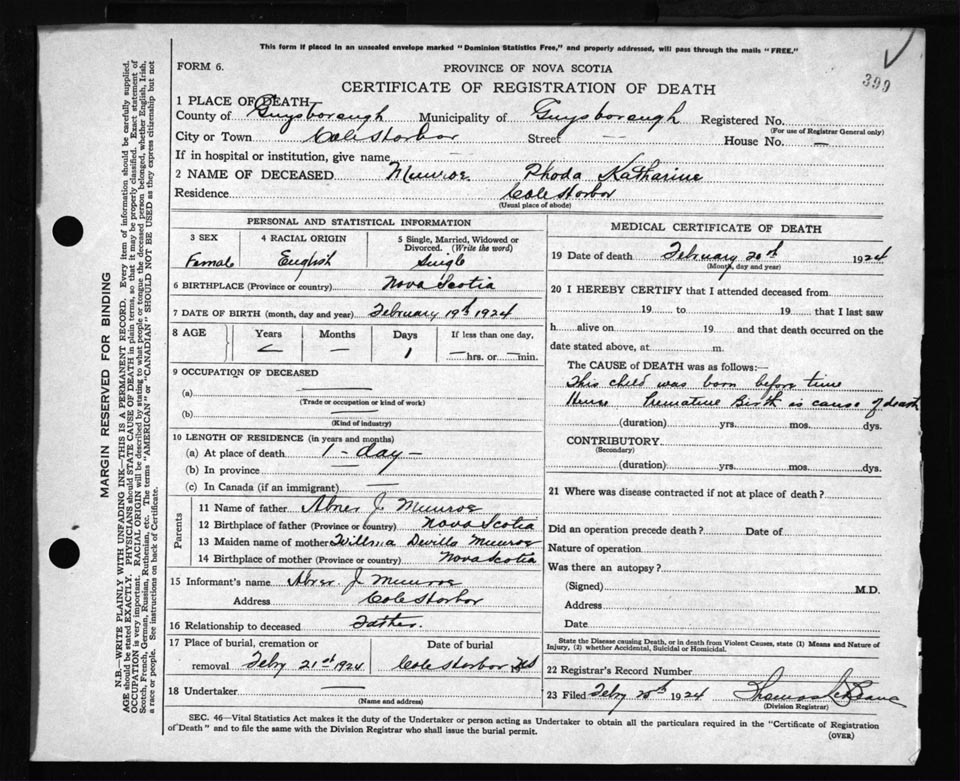 This form if placed in an unsealed envelope marked "Dominion Statistics Free," and properly addressed, will pass through the mails "FREE."
FORM 6.
PROVINCE OF NOVA SCOTIA
399
CERTIFICATE OF REGISTRATION OF DEATH
1 PLACE OF DEATH
County of Guysborough Municipality of Guysborough Registered No.
(For use of Registrar General only)
City or Town Cole Harbor Street — House No. —
If in hospital or institution, give name
2 NAME OF DECEASED Munroe Rhoda Katharine
Residence Cole Harbor
(Usual place of abode)
PERSONAL AND STATISTICAL INFORMATION
3 SEX 4 RACIAL ORIGIN 5 Single, Married, Widowed or Divorced. (Write the word)
Female English Single
6 BIRTHPLACE (Province or country) Nova Scotia
7 DATE OF BIRTH (month, day and year) February 19th 1924
8 AGE Years Months Days If less than one day,
— — 1 — hrs. or — min.
9 OCCUPATION OF DECEASED
(a) —
(Trade or occupation or kind of work)
(b) —
(Kind of industry)
10 LENGTH OF RESIDENCE (in years and months)
(a) At place of death 1 - day -
(b) In province —
(c) In Canada (if an immigrant) —
Parents
11 Name of father Abner J. Munroe
12 Birthplace of father (Province or country) Nova Scotia
13 Maiden name of mother Devilla Munroe
14 Birthplace of mother (Province or country) Nova Scotia
15 Informant's name Abner J Munroe
Address Cole Harbor
16 Relationship to deceased Father
17 Place of burial, cremation or removal Date of burial
Feby 21st 1924 Cole Harbor NS
18 Undertaker —
(Name and address)
MEDICAL CERTIFICATE OF DEATH
19 Date of death February 20th 1924
(Month, day and year)
20 I HEREBY CERTIFY that I attended deceased from
19 to 19 that I last saw
h alive on 19 and that death occurred on the
date stated above, at m.
The CAUSE of DEATH was as follows:—
This child was born before time
Hence Premature Birth is cause of death
(duration) yrs. mos. dys.
CONTRIBUTORY
(Secondary)
(duration) yrs. mos. dys.
21 Where was disease contracted if not at place of death?
Did an operation precede death? Date of
Nature of operation
Was there an autopsy?
(Signed) M.D.
Address
Date
State the Disease causing Death, or in death from Violent Causes, state (1) Means and Nature of
Injury, (2) whether Accidental, Suicidal or Homicidal.
22 Registrar's Record Number
23 Filed Feby 20th 1924 Thomas
(Division Registrar)
SEC. 46—Vital Statistics Act makes it the duty of the Undertaker or person acting as Undertaker to obtain all the particulars required in the "Certificate of Registration
of Death" and to file the same with the Division Registrar who shall issue the burial permit.
(OVER)
MARGIN RESERVED FOR BINDING
N.B.—WRITE PLAINLY WITH UNFADING INK—THIS IS A PERMANENT RECORD. Every item of information should be carefully supplied.
AGE should be stated EXACTLY. PHYSICIANS should STATE CAUSE OF DEATH in plain terms, so that it may be properly classified. Exact statement of
OCCUPATION is very important. RACIAL ORIGIN will be described by stating to what people or tongue the deceased person belonged, whether English, Irish,
Scotch, French, German, Russian, Ruthenian, etc. The terms "AMERICAN" or "CANADIAN" SHOULD NOT BE USED as they express citizenship but not
a race or people. See instructions on back of Certificate.